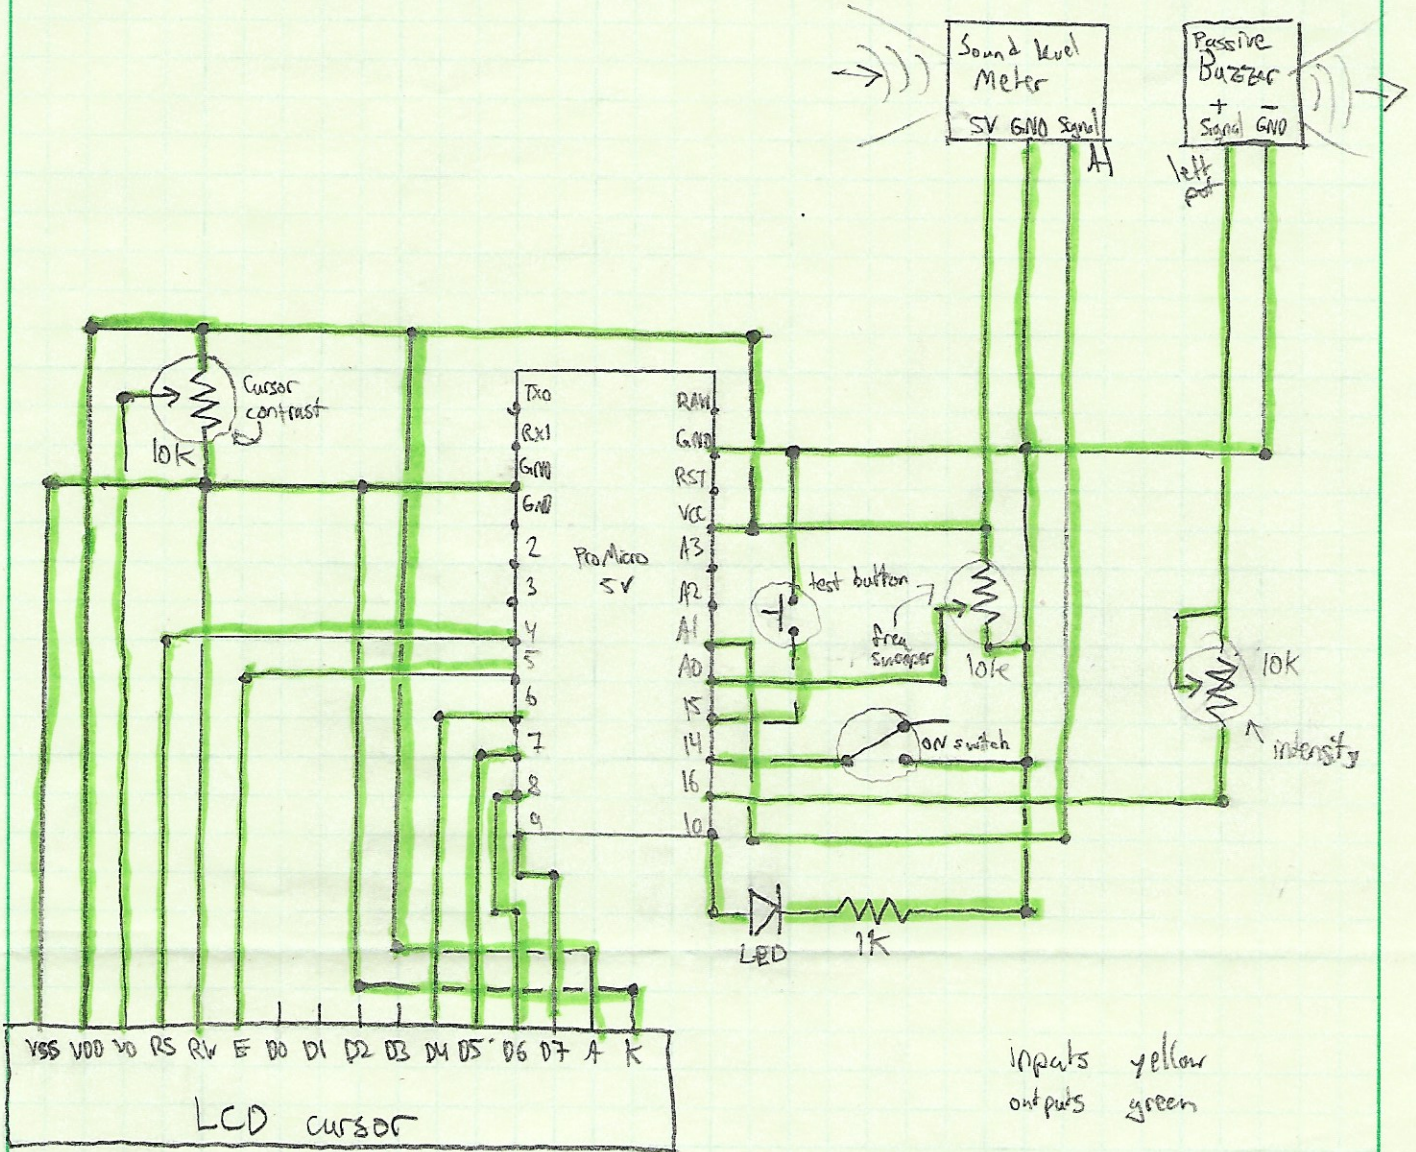 Sound level
Meter
5V GND Signal
A1
Passive
Buzzer
+ -
Signal GND
left
pot
Cursor
contrast
10K
TX0
RX1
GND
GND
2
3
4
5
6
7
8
9
ProMicro
5V
RAW
GND
RST
VCC
A3
A2
A1
A0
15
14
16
10
test button
freq
sweeper
10K
ON switch
10K
intensity
LED
1K
VSS VDD VO RS RW E D0 D1 D2 D3 D4 D5 D6 D7 A K
LCD cursor
inputs yellow
outputs green